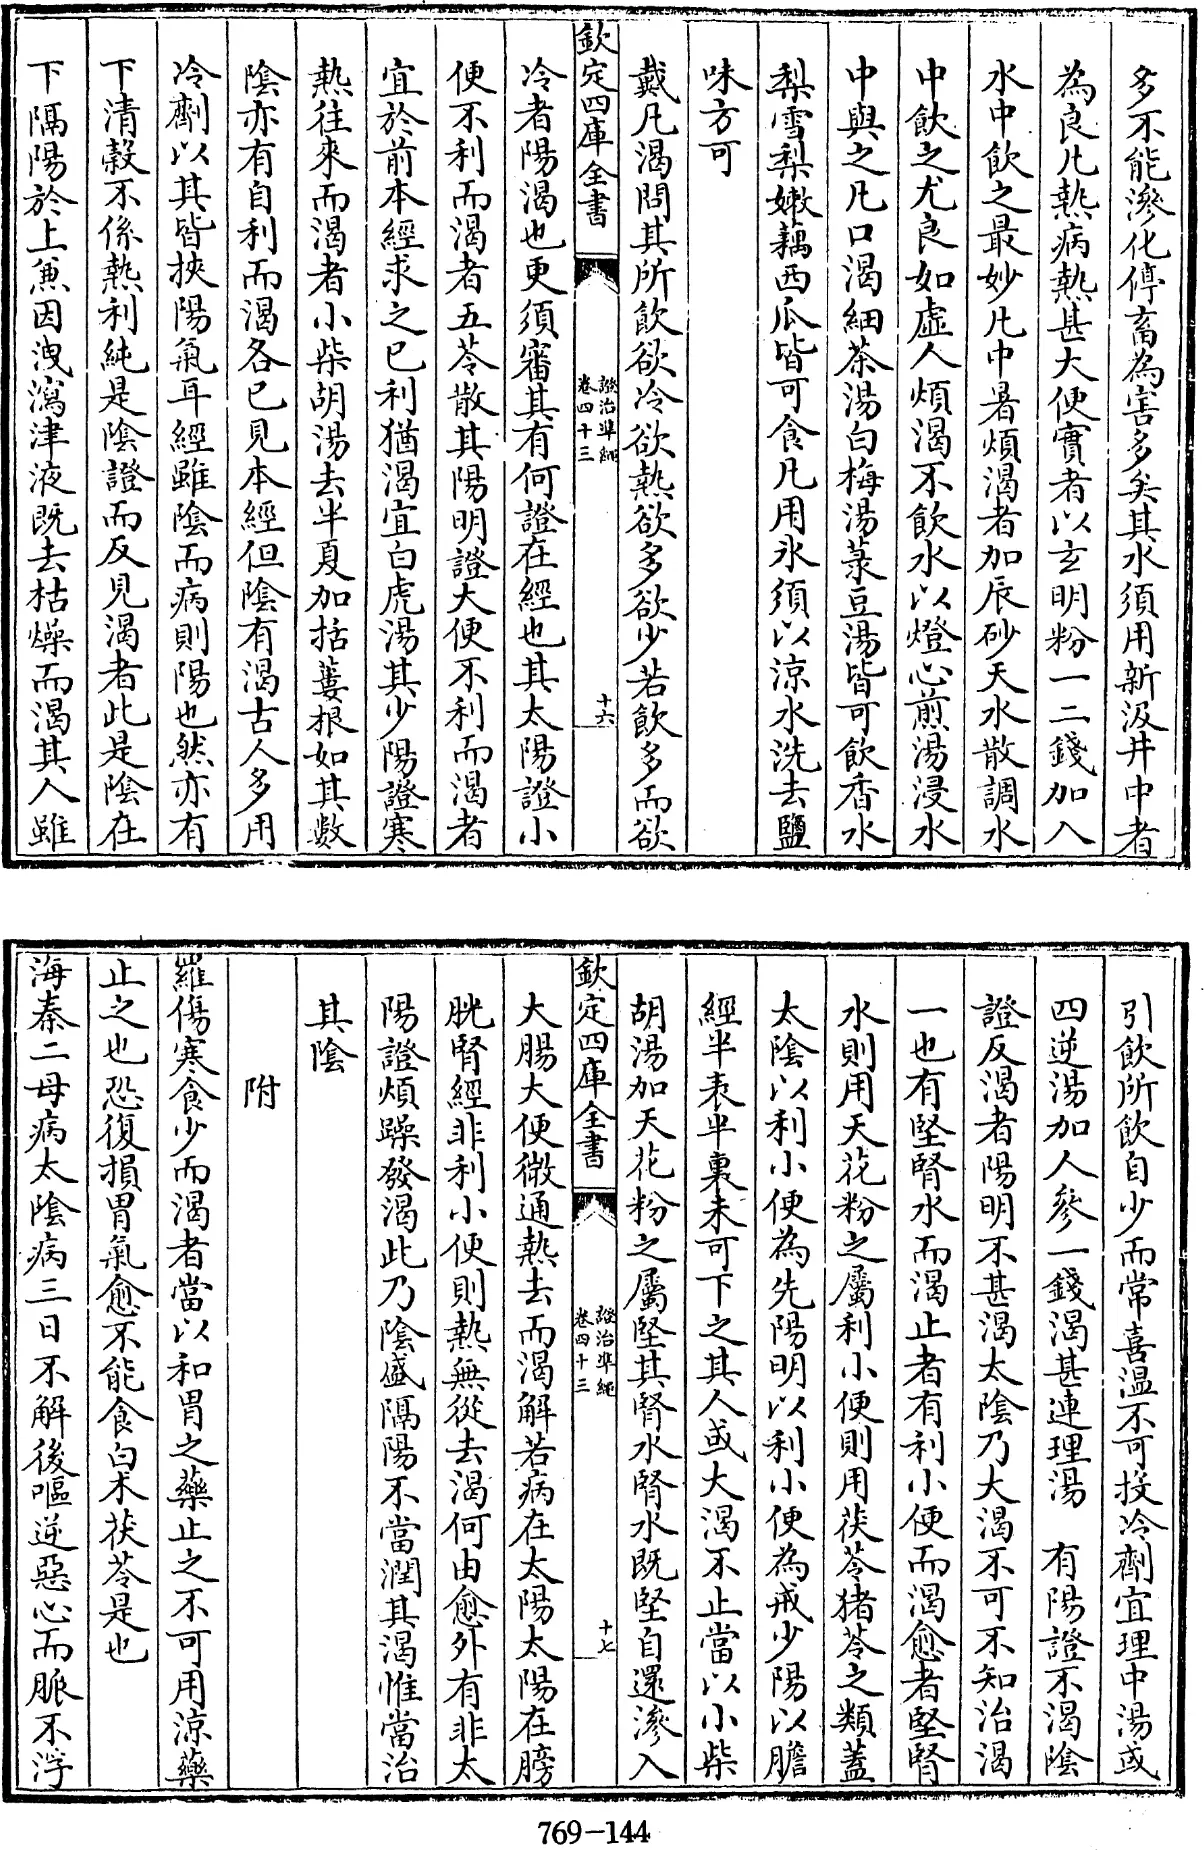 多不能滲化停畜為害多矣其水須用新汲井中者
為良凡熱病熱甚大便實者以玄明粉一二錢加入
水中飲之最妙凡中暑煩渴者加辰砂天水散調水
中飲之尤良如虛人煩渴不飲水以燈心煎湯浸水
中與之凡口渴細茶湯白梅湯菉豆湯皆可飲香水
梨雪梨嫩藕西瓜皆可食凡用氷須以涼水洗去鹽
味方可
戴凡渴問其所飲欲冷欲熱欲多欲少若飲多而欲
欽定四庫全書
證治準繩
卷四十三
十六
冷者陽渴也更須審其有何證在經也其太陽證小
便不利而渴者五苓散其陽明證大便不利而渴者
宜於前本經求之已利猶渴宜白虎湯其少陽證寒
熱往來而渴者小柴胡湯去半夏加括蔞根如其數
隂亦有自利而渴各已見本經但隂有渴古人多用
冷劑以其皆挾陽氣耳經雖隂而病則陽也然亦有
下清穀不係熱利純是隂證而反見渴者此是隂在
下隔陽於上兼因洩瀉津液既去枯燥而渴其人雖
引飲所飲自少而常喜温不可投冷劑宜理中湯或
四逆湯加人參一錢渴甚連理湯　有陽證不渴隂
證反渴者陽明不甚渴太隂乃大渴不可不知治渴
一也有堅腎水而渴止者有利小便而渴愈者堅腎
水則用天花粉之屬利小便則用茯苓猪苓之類蓋
太隂以利小便為先陽明以利小便為戒少陽以膽
經半表半裏未可下之其人或大渴不止當以小柴
胡湯加天花粉之屬堅其腎水腎水既堅自還滲入
欽定四庫全書
證治準繩
卷四十三
十七
大腸大便微通熱去而渴解若病在太陽太陽在膀
胱腎經非利小便則熱無從去渴何由愈外有非太
陽證煩躁發渴此乃隂盛隔陽不當潤其渴惟當治
其隂
附
羅傷寒食少而渴者當以和胃之藥止之不可用涼藥
止之也恐復損胃氣愈不能食白朮茯苓是也
海秦二母病太隂病三日不解後嘔逆惡心而脈不浮
769-144